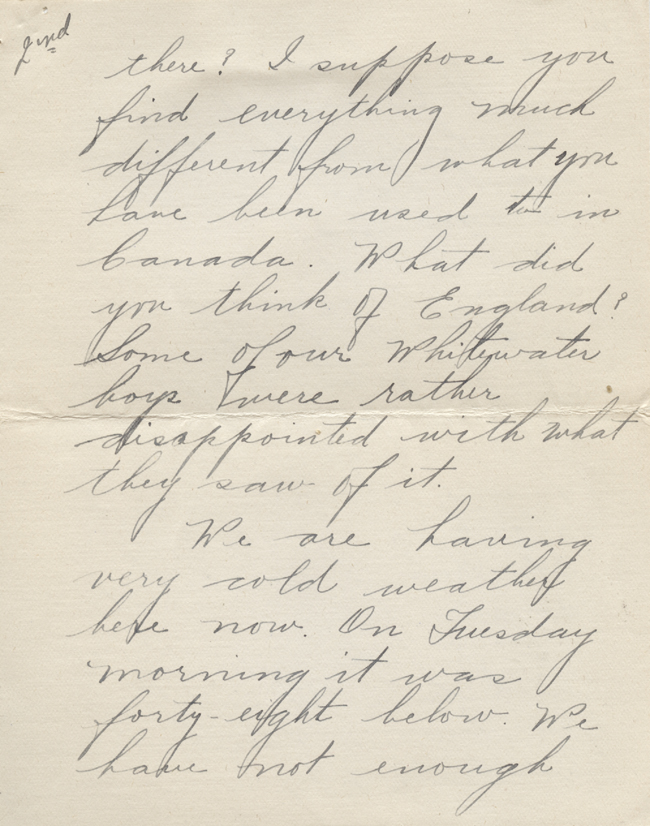 2nd
there? I suppose you
find everything much
different from what you
have been used to in
Canada. What did
you think of England?
Some of our Whitewater
boys were rather
disappointed with what
they saw of it.
We are having
very cold weather
here now. On Tuesday
morning it was
forty-eight below. We
have not enough